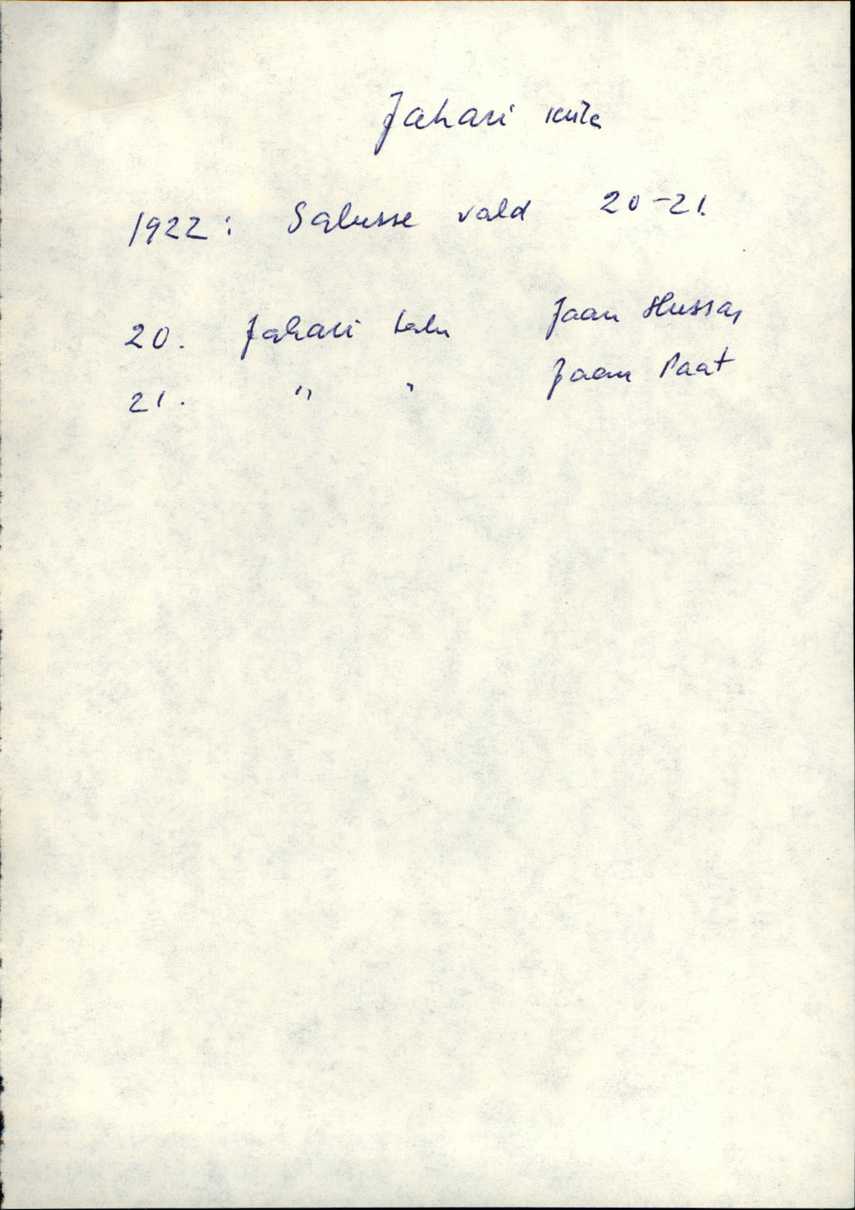 Jahari küla
1922: Salusse vald 20-21.
20. Jahari talu Jaan Hussar
21. " " Jaan Paat